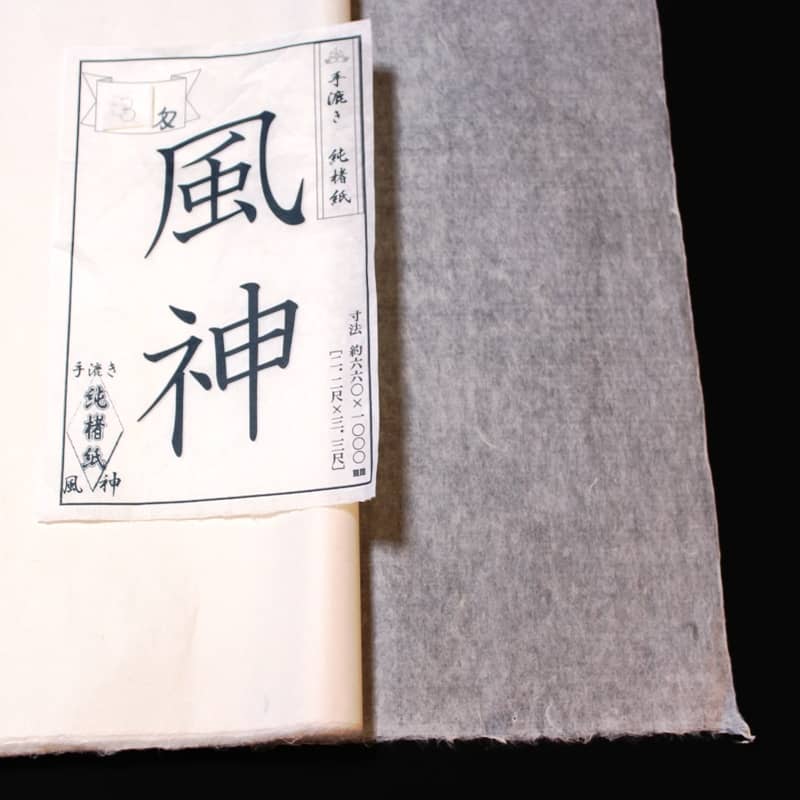 手漉き 純楮紙
匁
風神
寸法 約六六〇×一〇〇〇㎜
[二.二尺×三.三尺]
手漉き
純楮紙
風神